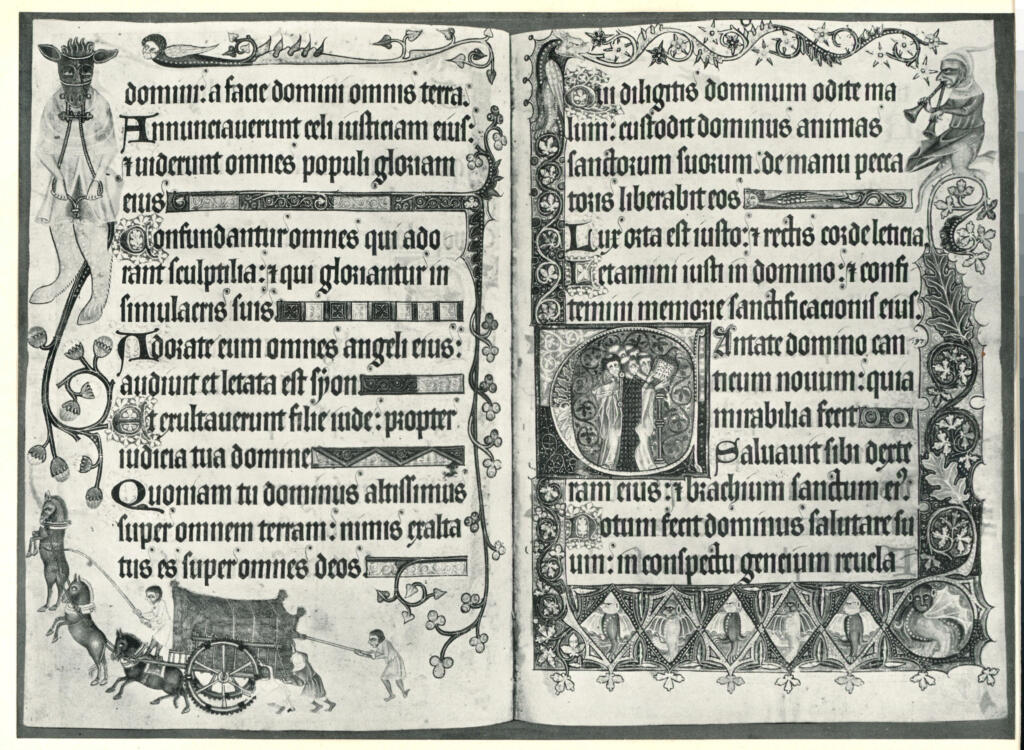 domini: a facie domini omnis terra.
Annunciauerunt celi iusticiam eius:
⁊ uiderunt omnes populi gloriam
eius
Confundantur omnes qui ado
rant sculptilia: ⁊ qui gloriantur in
simulacris suis
Adorate eum omnes angeli eius:
audiuit et letata est syon
Et exultauerunt filie iude: propter
iudicia tua domine
Quoniam tu dominus altissimus
super omnem terram: nimis exalta
tus es super omnes deos.
Qui diligitis dominum odite ma
lum: custodit dominus animas
sanctorum suorum. de manu pecca
toris liberabit eos
Lux orta est iusto: ⁊ rectis corde leticia
Letamini iusti in domino: ⁊ confi
temini memorie sanctificacionis eius.
Cantate domino can
ticum nouum: quia
mirabilia fecit
Saluauit sibi dexte
ram eius: ⁊ brachium sanctum eiꝰ.
Notum fecit dominus salutare su
um: in conspectu gencium reuela